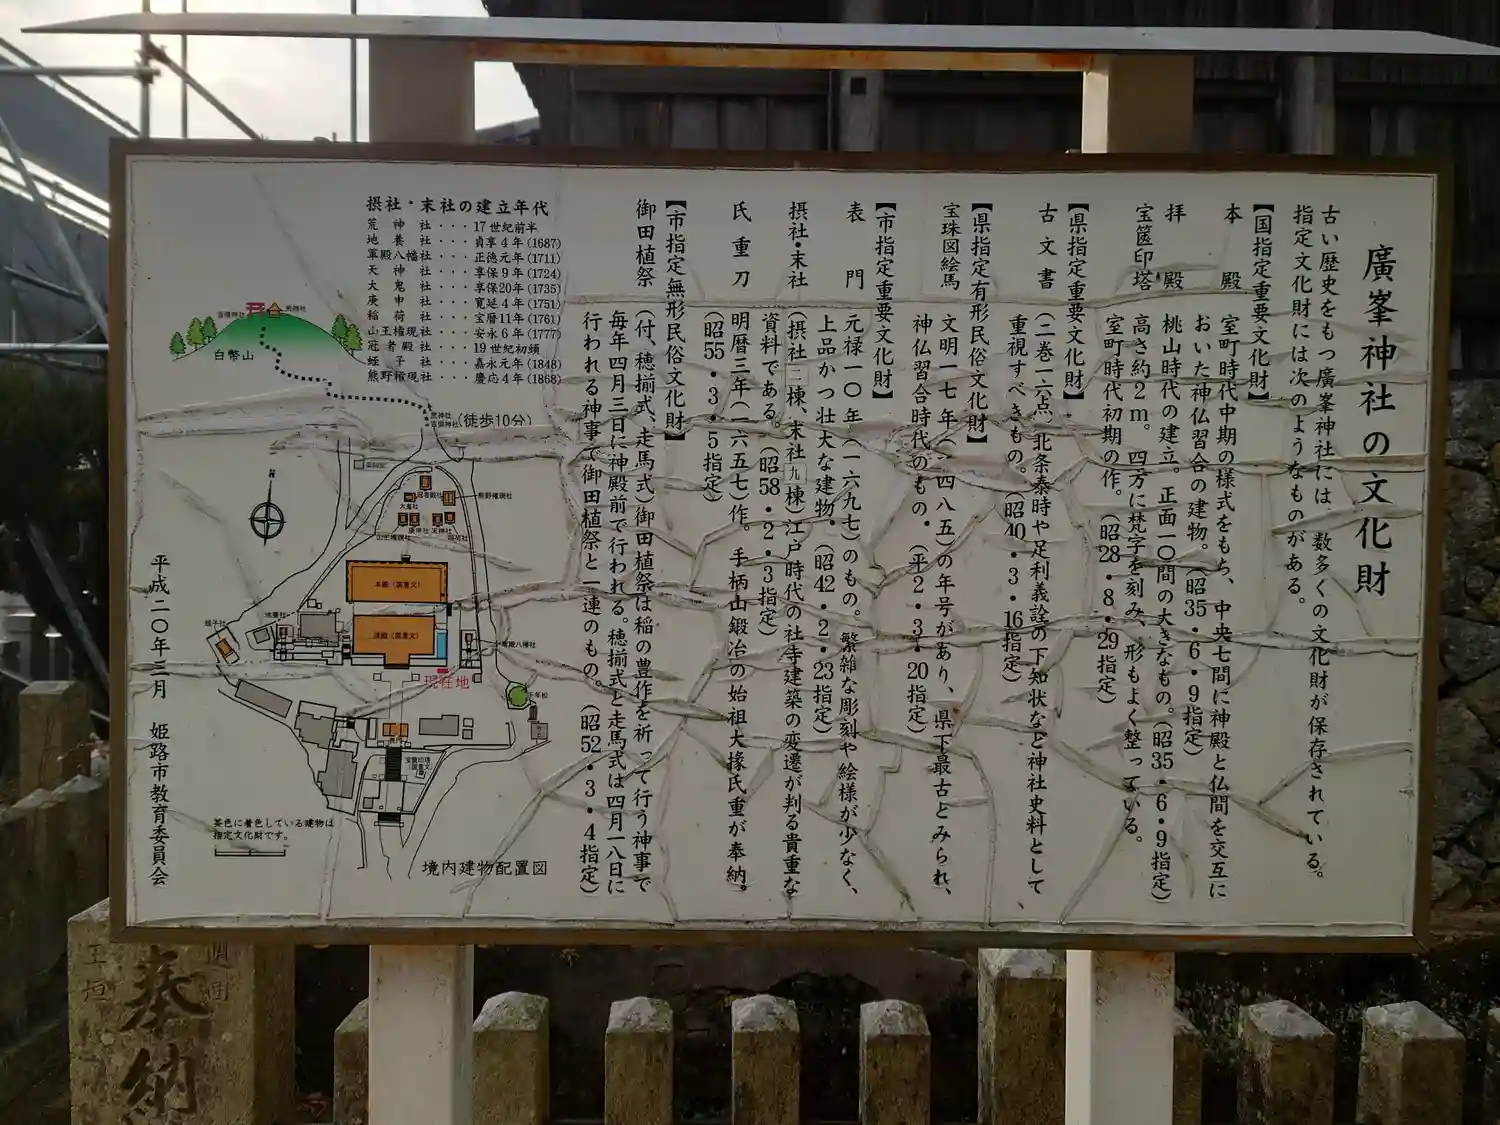 廣峯神社の文化財
古い歴史をもつ廣峯神社には、数多くの文化財が保存されている。
指定文化財には次のようなものがある。
【国指定重要文化財】
本殿 室町時代中期の様式をもち、中央七間に神殿と仏間を交互に
おいた神仏習合の建物。(昭35・6・9指定)
拝殿 桃山時代の建立。正面一〇間の大きなもの。(昭35・6・9指定)
宝篋印塔 高さ約2m。四方に梵字を刻み、形もよく整っている。
室町時代初期の作。(昭28・8・29指定)
【県指定重要文化財】
古文書 (二巻一六点)北条泰時や足利義詮の下知状など神社史料として、
重視すべきもの。(昭40・3・16指定)
【県指定有形民俗文化財】
宝珠図絵馬 文明一七年(一四八五)の年号があり、県下最古とみられ、
神仏習合時代のもの。(平2・3・20指定)
【市指定重要文化財】
表門 元禄一〇年(一六九七)のもの。繁雑な彫刻や絵様が少なく、
上品かつ壮大な建物。(昭42・2・23指定)
摂社・末社 (摂社二棟、末社九棟)江戸時代の社寺建築の変遷が判る貴重な
資料である。(昭58・2・3指定)
氏重刀 明暦三年(一六五七)作。手柄山鍛冶の始祖大掾氏重が奉納。
(昭55・3・5指定)
【市指定無形民俗文化財】
御田植祭 (付、穂揃式、走馬式)御田植祭は稲の豊作を祈って行う神事で
毎年四月三日に神殿前で行われる。穂揃式と走馬式は四月一八日に
行われる神事で御田植祭と一連のもの。(昭52・3・4指定)
摂社・末社の建立年代
荒神社・・・17世紀前半
地養社・・・貞享4年(1687)
軍殿八幡社・・・正徳元年(1711)
天神社・・・享保9年(1724)
大鬼社・・・享保20年(1735)
庚申社・・・寛延4年(1751)
稲荷社・・・宝暦11年(1761)
山王権現社・・・安永6年(1777)
冠者殿社・・・19世紀初頭
蛭子社・・・嘉永元年(1848)
熊野権現社・・・慶応4年(1868)
荒神社
白幣山
荒神社
吉備神社
(徒歩10分)
N
冠者殿社
熊野権現社
大鬼社
庚申社
天神社
山王権現社
稲荷社
本殿(国重文)
拝殿(国重文)
地養社
蛭子社
軍殿八幡社
現在地
千年松
表門
宝篋印塔
(国重文)
茶色に着色している建物は
指定文化財です。
境内建物配置図
平成二〇年三月 姫路市教育委員会
奉納